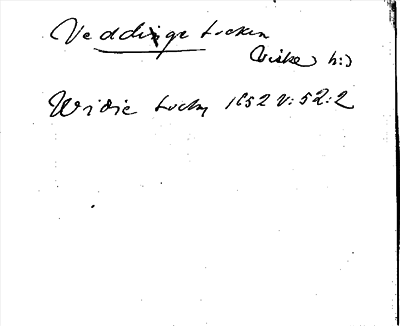 Veddinge Lucken
Viske h:)
Widie Lucky 1652 V:52:2